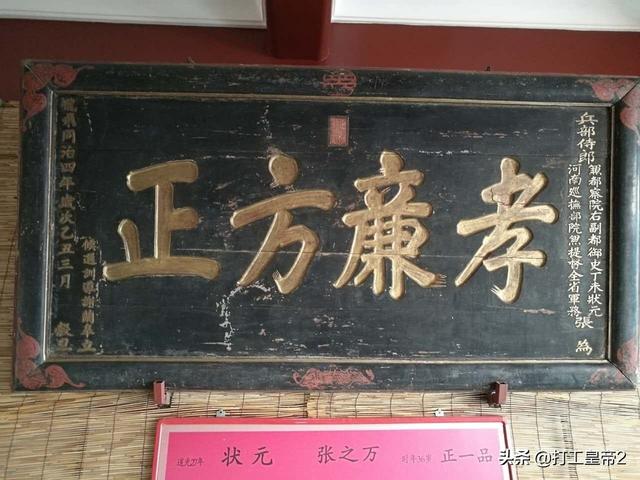 孝廉方正
兵部侍郎
兼都察院右副都御史丁未狀元
河南巡撫部院兼提督全省軍務
張 為
龍飛同治四年歲次乙丑三月 穀旦
候選訓導 蘭皋立
道光27年 状元 张之万 时年36岁 正一品
头条 @打工皇帝2